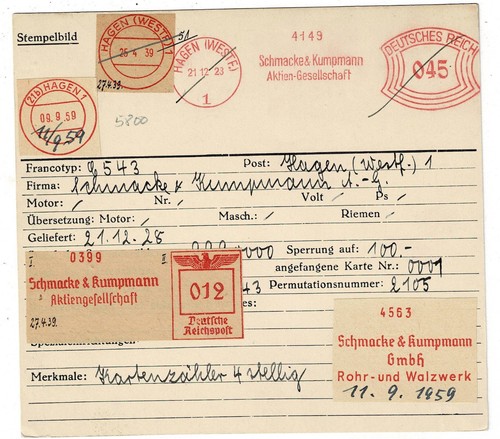 Stempelbild
HAGEN (WESTF) 1
26 4 39
27.4.39.
51
HAGEN (WESTF.)
21.12.28
1
4149
Schmacke & Kumpmann
Aktien-Gesellschaft
DEUTSCHES REICH
045
(21b) HAGEN 1
09.9.59
11/9.59
5800
Francotyp: C 543 Post: Hagen (Westf.) 1
Firma: Schmacke & Kumpmann A.-G.
Motor: / Nr. / Volt / Ps /
Übersetzung: Motor: / Masch.: / Riemen /
Geliefert: 21.12.28
000 Sperrung auf: 100.-
angefangene Karte Nr.: 0001
43 Permutationsnummer: 2105
es:
I. 0399 II.
Schmacke & Kumpmann
Aktiengesellschaft
27.4.39.
012
Deutsche
Reichspost
4563
Schmacke & Kumpmann
GmbH
Rohr- und Walzwerk
11. 9. 1959
Merkmale: Kartenzähler 4 stellig